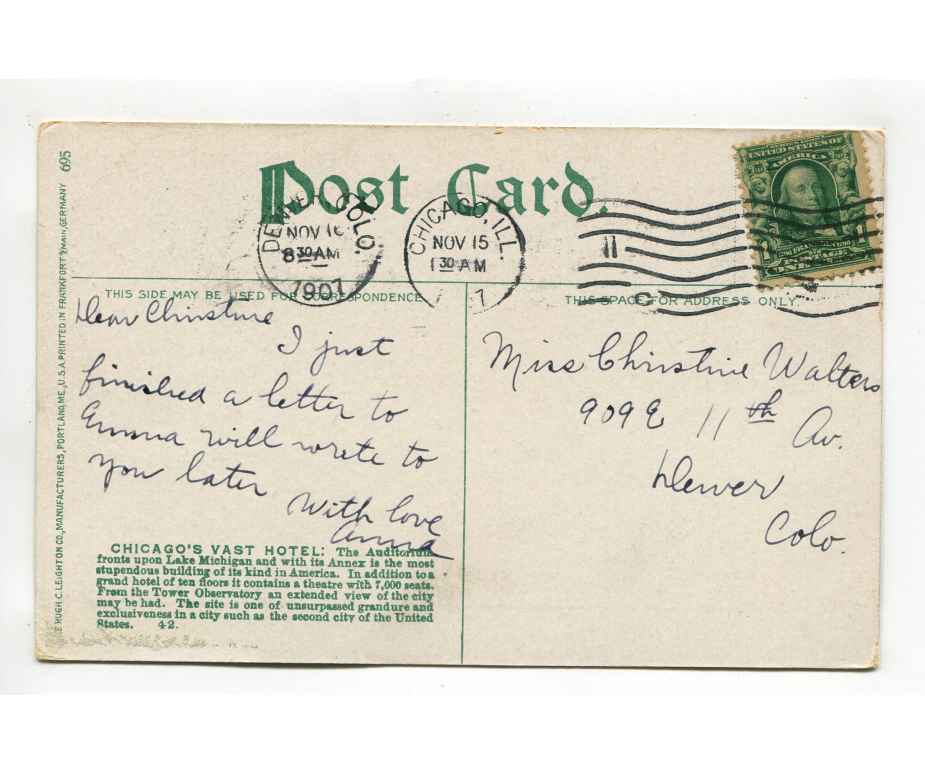 THE HUGH C. LEIGHTON CO., MANUFACTURERS, PORTLAND, ME., U.S.A. PRINTED IN FRANKFORT ª/MAIN, GERMANY 695
Post Card.
DENVER COLO.
NOV 16
8 30 AM
1907
CHICAGO, ILL.
NOV 15
1 30 AM
7
UNITED STATES OF
AMERICA
ONE
THIS SIDE MAY BE USED FOR CORRESPONDENCE.
THIS SPACE FOR ADDRESS ONLY.
Dear Christine
I just
finished a letter to
Emma will wrete to
you later
With love
Anna
CHICAGO'S VAST HOTEL: The Auditorium
fronts upon Lake Michigan and with its Annex is the most
stupendous building of its kind in America. In addition to a
grand hotel of ten floors it contains a theatre with 7,000 seats.
From the Tower Observatory an extended view of the city
may be had. The site is one of unsurpassed grandure and
exclusiveness in a city such as the second city of the United
States. 42.
Miss Christine Walters
909 E 11th Av.
Denver
Colo.